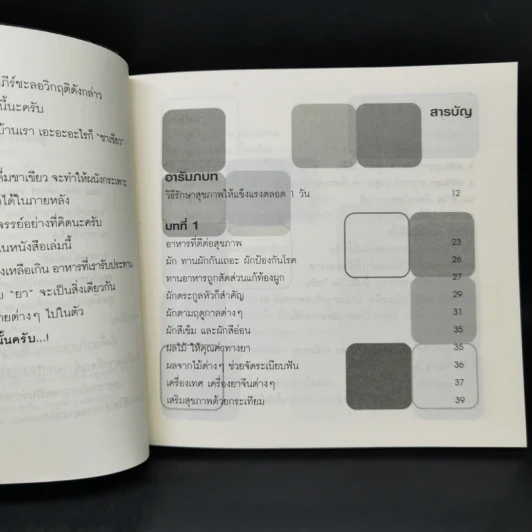 ภีร์ชะลอวิกฤติดังกล่าว
นี้นะครับ
บ้านเรา เอะอะอะไรก็ "ชาเขียว"
ดื่มชาเขียว จะทำให้ผนังกระเพาะ
ได้ในภายหลัง
จรรย์อย่างที่คิดนะครับ
ในหนังสือเล่มนี้
งเหลือเกิน อาหารที่เรารับประทาน
"ยา" จะเป็นสิ่งเดียวกัน
ายต่างๆ ไปในตัว
นั้นครับ...!
สารบัญ
อารัมภบท
วิธีรักษาสุขภาพให้แข็งแรงตลอด 1 วัน 12
บทที่ 1
อาหารที่ดีต่อสุขภาพ 23
ผัก ทานผักกันเถอะ ผักป้องกันโรค 26
ทานอาหารถูกสัดส่วนแก้ท้องผูก 27
ผักตระกูลหัวก็สำคัญ 29
ผักตามฤดูกาลต่างๆ 31
ผักสีเข้ม และผักสีอ่อน 35
ผลไม้ ให้คุณค่าทางยา 35
ผลจากไม้ต่างๆ ช่วยจัดระเบียบฟัน 36
เครื่องเทศ เครื่องยาจีนต่างๆ 37
เสริมสุขภาพด้วยกระเทียม 39